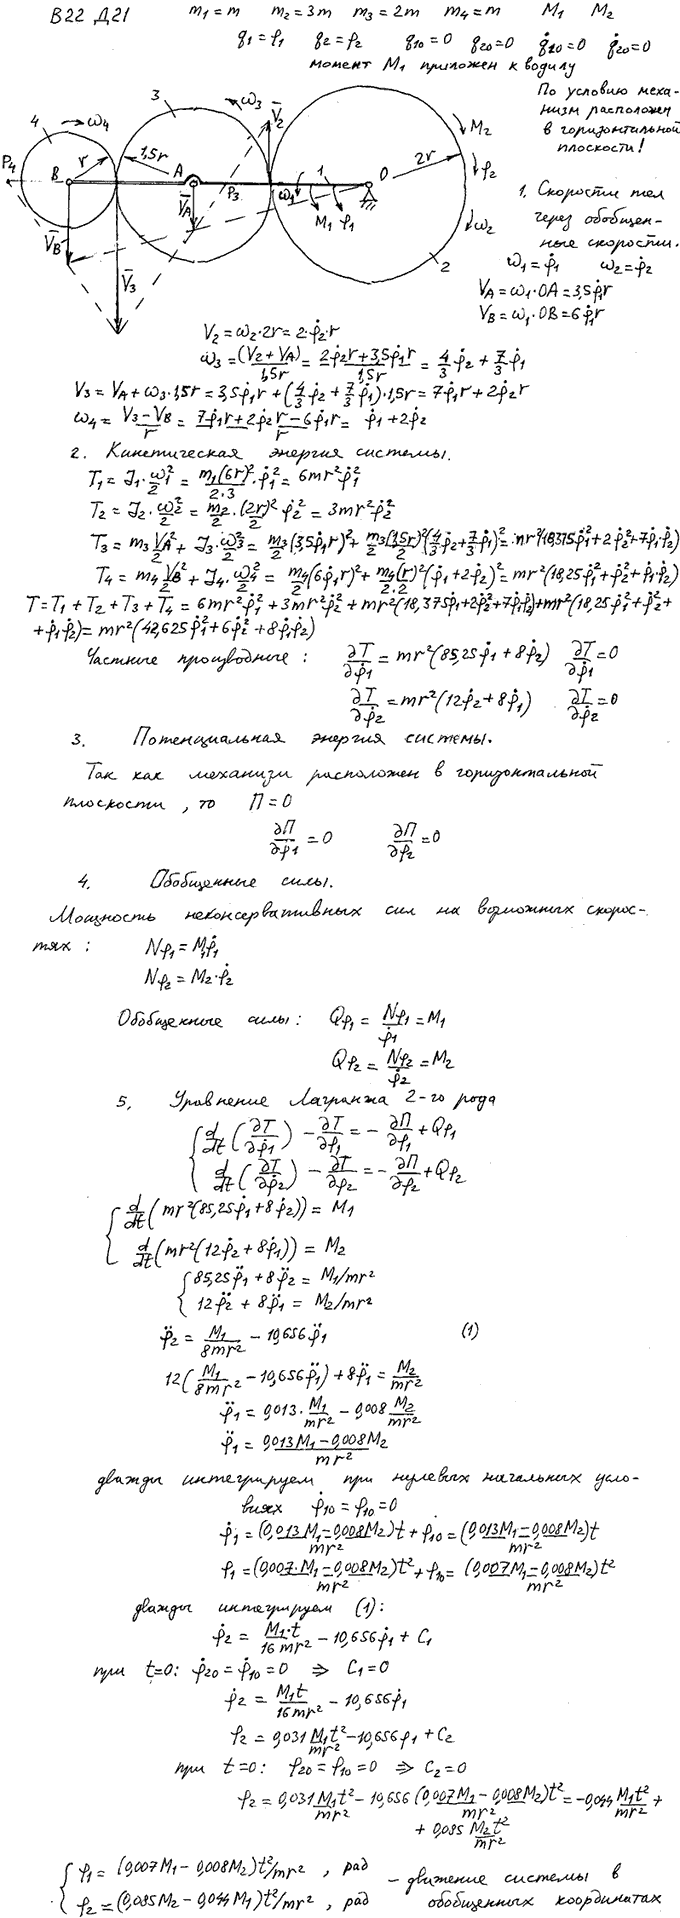 B22 Д21 m1=m m2=3m m3=2m m4=m M1 M2
q1=φ1 q2=φ2 q10=0 q20=0 q̇10=0 q̇20=0
момент M1 приложен к водилу
По условию меха-
низм расположен
в горизонтальной
плоскости!
4 ω4 3 ω3 V̄2 M2
P4 B r 1,5r A P3 1 O 2r φ2
V̄B V̄A ω1 M1 φ1 ω2
V̄3 2
1. Скорости тел
через обобщен-
ные скорости.
ω1=φ̇1 ω2=φ̇2
VA=ω1·OA=3,5φ̇1r
VB=ω1·OB=6φ̇1r
V2=ω2·2r=2·φ̇2·r
ω3=(V2+VA)/1,5r=(2φ̇2r+3,5φ̇1r)/1,5r=4/3φ̇2+7/3φ̇1
V3=VA+ω3·1,5r=3,5φ̇1r+(4/3φ̇2+7/3φ̇1)·1,5r=7φ̇1r+2φ̇2r
ω4=(V3-VB)/r=(7φ̇1r+2φ̇2r-6φ̇1r)/r=φ̇1+2φ̇2
2. Кинетическая энергия системы.
T1=J1·ω1²/2=m1(6r)²/2·3·φ̇1²=6mr²φ̇1²
T2=J2·ω2²/2=m2/2·(2r)²/2φ̇2²=3mr²φ̇2²
T3=m3VA²/2+J3·ω3²/2=m3/2(3,5φ̇1r)²+m3/2(1,5r)²/2(4/3φ̇2+7/3φ̇1)²=mr²(18,375φ̇1²+2φ̇2²+7φ̇1·φ̇2)
T4=m4VB²/2+J4·ω4²/2=m4/2(6φ̇1r)²+m4(r)²/2·2(φ̇1+2φ̇2)²=mr²(18,25φ̇1²+φ̇2²+φ̇1φ̇2)
T=T1+T2+T3+T4=6mr²φ̇1²+3mr²φ̇2²+mr²(18,375φ̇1+2φ̇2²+7φ̇1φ̇2)+mr²(18,25φ̇1²+φ̇2²+
+φ̇1φ̇2)=mr²(42,625φ̇1²+6φ̇2²+8φ̇1φ̇2)
Частные производные: ∂T/∂φ̇1=mr²(85,25φ̇1+8φ̇2) ∂T/∂φ1=0
∂T/∂φ̇2=mr²(12φ̇2+8φ̇1) ∂T/∂φ2=0
3. Потенциальная энергия системы.
Так как механизм расположен в горизонтальной
плоскости, то П=0
∂П/∂φ1=0 ∂П/∂φ2=0
4. Обобщенные силы.
Мощность неконсервативных сил на возможных скорос-
тях: Nφ1=M1φ̇1
Nφ2=M2·φ̇2
Обобщенные силы: Qφ1=Nφ1/φ̇1=M1
Qφ2=Nφ2/φ̇2=M2
5. Уравнение Лагранжа 2-го рода
d/dt(∂T/∂φ̇1)-∂T/∂φ1=-∂П/∂φ1+Qφ1
d/dt(∂T/∂φ̇2)-∂T/∂φ2=-∂П/∂φ2+Qφ2
d/dt(mr²(85,25φ̇1+8φ̇2))=M1
d/dt(mr²(12φ̇2+8φ̇1))=M2
85,25φ̈1+8φ̈2=M1/mr²
12φ̈2+8φ̈1=M2/mr²
φ̈2=M1/8mr²-10,656φ̈1 (1)
12(M1/8mr²-10,656φ̈1)+8φ̈1=M2/mr²
φ̈1=0,013·M1/mr²-0,008M2/mr²
φ̈1=(0,013M1-0,008M2)/mr²
дважды интегрируем при нулевых начальных усло-
виях φ̇10=φ10=0
φ̇1=(0,013M1-0,008M2)t/mr²+φ̇10=(0,013M1-0,008M2)t/mr²
φ1=(0,007·M1-0,008M2)t²/mr²+φ10=(0,007M1-0,008M2)t²/mr²
дважды интегрируем (1):
φ̇2=M1·t/16mr²-10,656φ̇1+C1
при t=0: φ̇20=φ̇10=0 ⇒ C1=0
φ̇2=M1t/16mr²-10,656φ̇1
φ2=0,031M1t²/mr²-10,656φ1+C2
при t=0: φ20=φ10=0 ⇒ C2=0
φ2=0,031M1t²/mr²-10,656(0,007M1-0,008M2)t²/mr²=-0,044M1t²/mr²+
+0,085M2t²/mr²
φ1=(0,007M1-0,008M2)t²/mr², рад - движение системы в
φ2=(0,085M2-0,044M1)t²/mr², рад обобщенных координатах